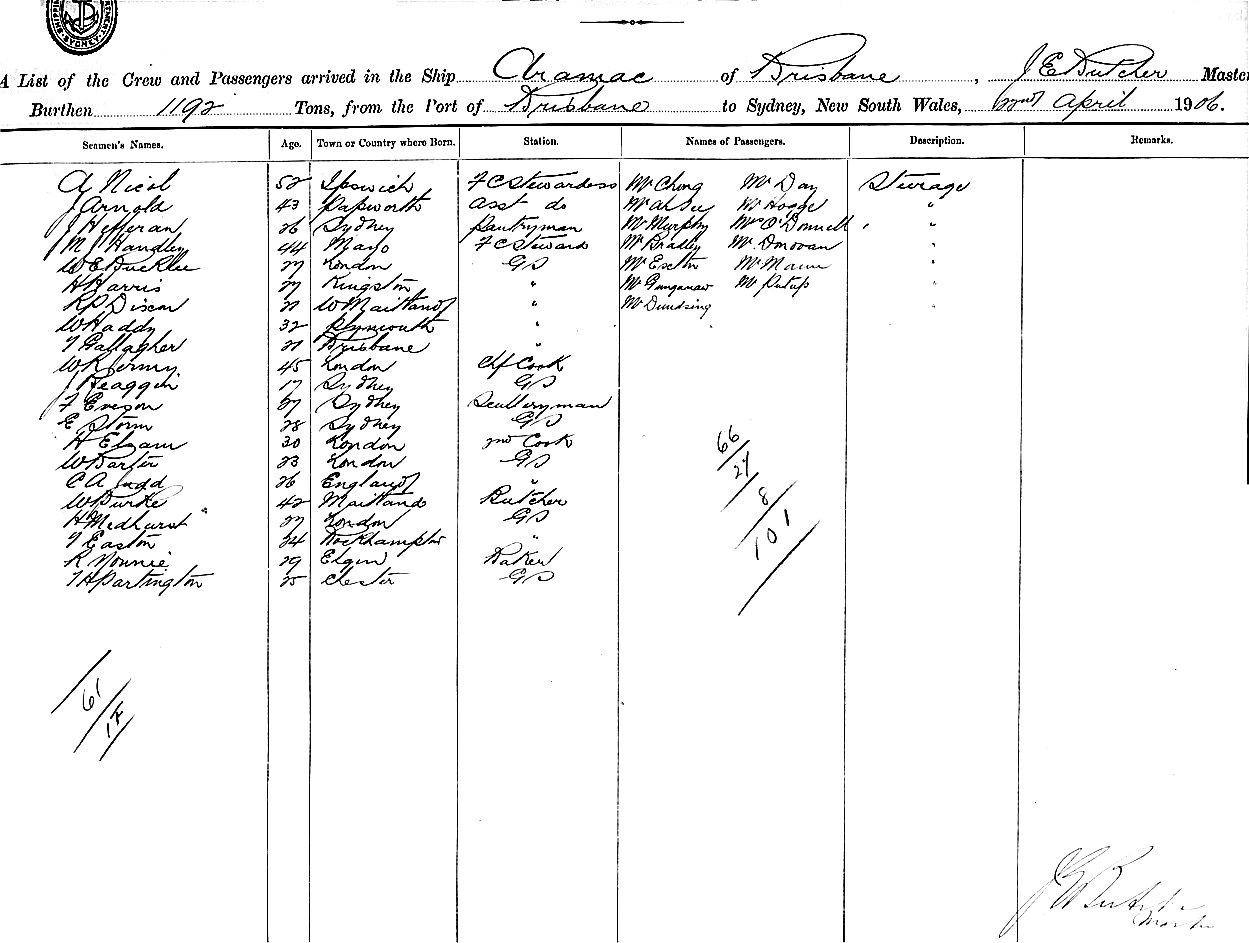 SYDNEY
A List of the Crew and Passengers arrived in the Ship Aramac of Brisbane, J E Butcher Master
Burthen 1192 Tons, from the Port of Brisbane to Sydney, New South Wales, 22nd April 1906.
Seamen's Names. Age. Town or Country where Born. Station. Names of Passengers. Description. Remarks.
A Nicol 52 Ipswich F C Stewardess Mr Chong Mr Day Steerage
J Arnold 43 Papworth Asst do Mr Ah See Mr Hodge "
J Hefferan 26 Sydney Pantryman Mr Murphy Mrs O'Donnell "
M J Handley 44 Mayo F C Steward Mr Bradley Mr Donovan "
W E Bucklee 27 London G S Mr Mann "
H Harris 27 Kingston " Mr "
R P Dixon 21 W Maitland " Mr "
W Haddy 32 Plymouth "
T Gallagher 21 Brisbane "
W R Jermy 45 London Chf Cook
J Heaggin 17 Sydney G S
F Eveson 27 Sydney Sculleryman
E Storm 28 Sydney G S
H Elzam 30 London 2nd Cook
W Barter 23 London G S
C A Judd 26 England "
W Burke 42 Maitland Butcher
H Medhurst 27 London G S
T Easton 24 Rockhampton "
R Mounie 29 Elgin Baker
T H Partington 25 Chester G S
66
27
8
101
61
J E Butcher
Master